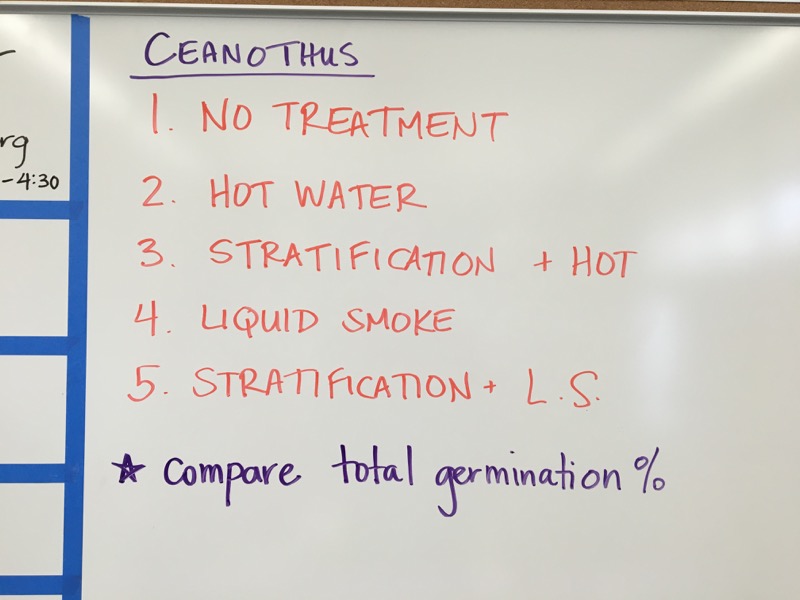 CEANOTHUS
1. NO TREATMENT
2. HOT WATER
3. STRATIFICATION + HOT
4. LIQUID SMOKE
5. STRATIFICATION + L.S.
☆ compare total germination %
rg
-4:30